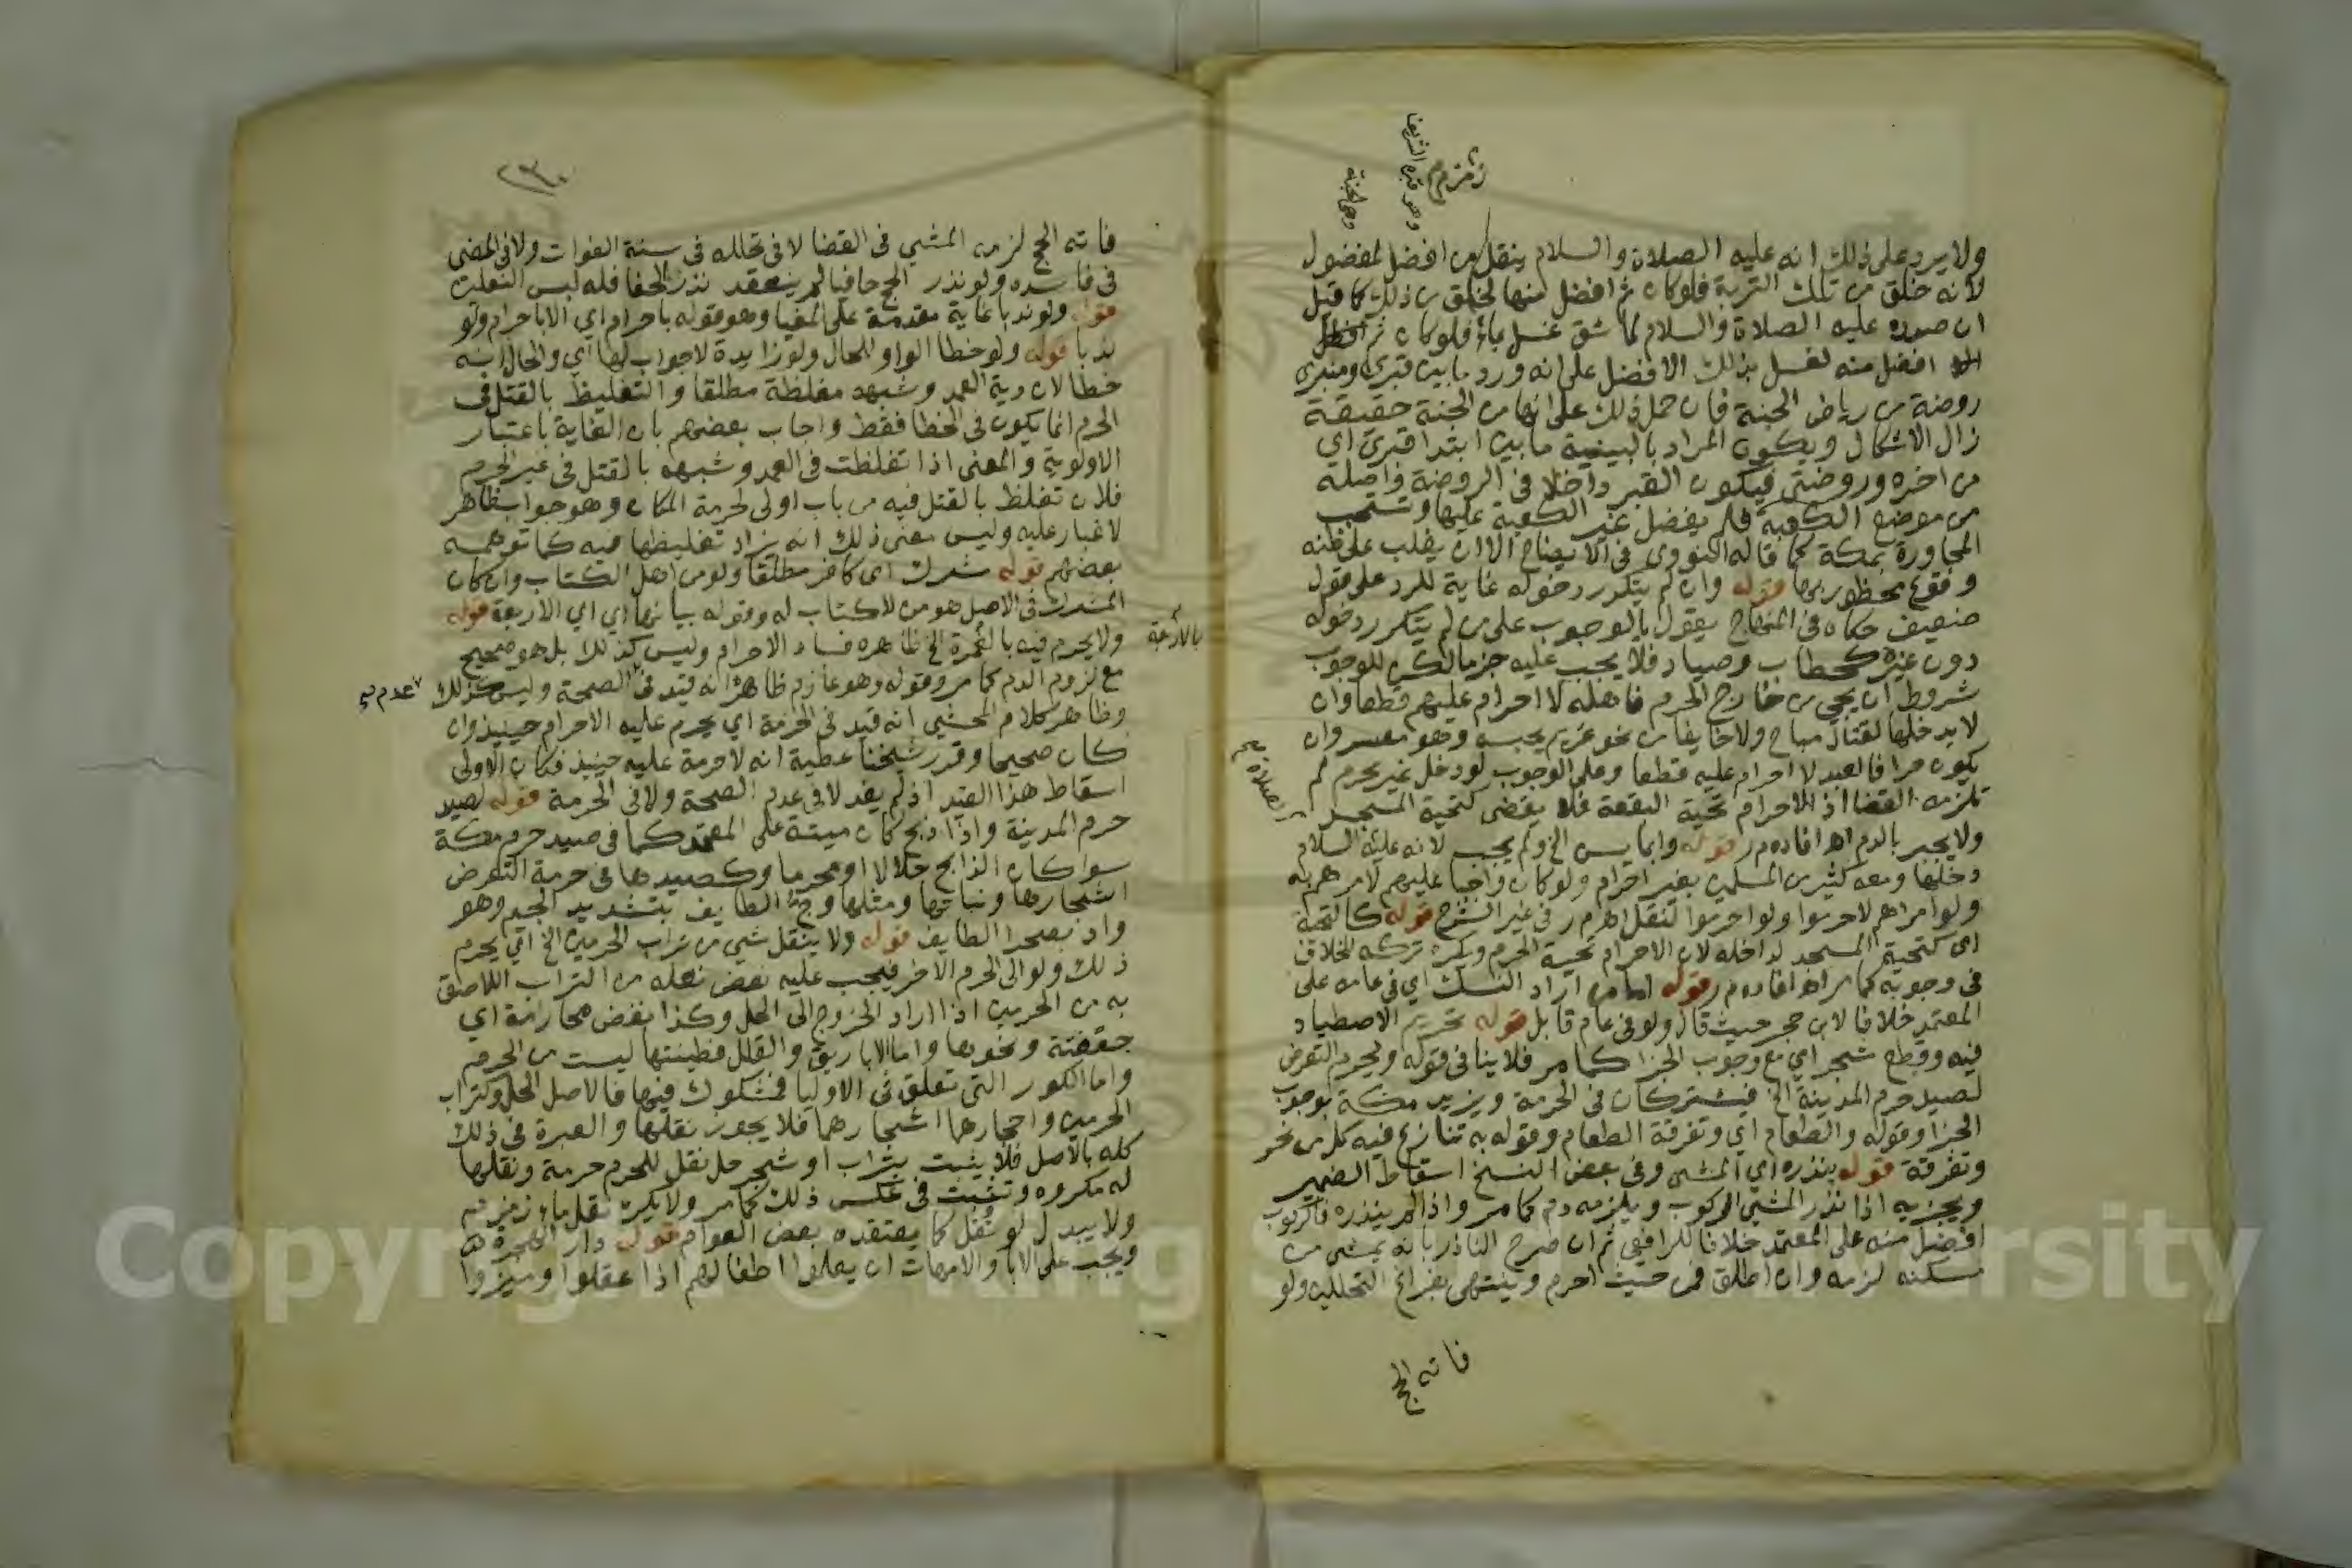 ولا يرد على ذلك انه عليه الصلاة والسلام ينقل من افضل لمفضول
لانه خلق من تلك التربة فلو كان ثم افضل منها لخلق من ذلك كما قيل
ان صدره عليه الصلاة والسلام لما شق غسل بماء فلو كان ثم
افضل منه لغسل بذلك الافضل على انه ورد ما بين قبري ومنبري
روضة من رياض الجنة فان حمل ذلك على انها من الجنة حقيقة
زال الاشكال ويكون المراد بالبينية ما بين ابتدا قبري اي
من اخره وروضتي فيكون القبر داخلا في الروضة واصله
من موضع الكعبة فلم يفضل غير الكعبة عليها وتستحب
المجاورة بمكة كما قاله النووي في الايضاح الا ان يغلب على ظنه
وقوع محظور بها قوله وان لم يتكرر دخوله غاية للرد على قول
ضعيف حكاه في المنهاج يقول بالوجوب على من لم يتكرر دخوله
دون غيره كحطاب وصياد فلا يجب عليه جزما لكن للوجوب
شروط ان يجي من خارج الحرم فاهله لا احرام عليهم قطعا وان
لا يدخلها لقتال مباح ولا خايفا من نحو غريم يحبسه وهو معسر وان
يكون حرا فالعبد لا احرام عليه قطعا وعلى الوجوب لو دخل غير محرم لم
تلزمه القضا اذ الاحرام تحية البقعة فلا يقضى كتحية المسجد
ولا يجبر بالدم اه افاده م ر قوله وانما يسن الخ ولم يجب لانه عليه السلام
دخلها ومعه كثير من المسلمين بغير احرام ولو كان واجبا عليهم لامرهم به
ولو امرهم لاحرموا ولو احرموا لنقل اه م ر في غير الشرح قوله كالتحية
اي كتحية المسجد لداخله لان الاحرام تحية الحرم ويكره تركه للخلاف
في وجوبه كما مر اه افاده م ر قوله اما من اراد النسك اي في عامه على
المعتمد خلافا لابن حجر حيث قال ولو في عام قابل قوله تحريم الاصطياد
فيه وقطع شجر اي مع وجوب الجزا كما مر فلا ينافي قوله ويحرم التعرض
لصيد حرم المدينة الخ فيشتركان في الحرمة ويزيد مكة بوجوب
الجزا وقوله والطعام اي وتفرقة الطعام وقوله به تنازع فيه كل من نحر
وتفرقة قوله بنذره اي المشي وفي بعض النسخ اسقاط الضمير
ويجزيه اذا نذر المشي الركوب ويلزمه دم كما مر واذا لم ينذره فالركوب
افضل منه على المعتمد خلافا للرافعي ثم ان صرح الناذر بانه يمشي من
مسكنه لزمه وان اطلق فمن حيث احرم وينتهي بفراغ التحللين ولو
فاته الحج
زمزم
وهو قبره الشريف
وهي الجنة
الصلاة
٢٣٠
فاته الحج لزمه المشي في القضا لا في تحلله في سنة الفوات ولا في المضي
في فاسده ولو نذر الحج حافيا لم ينعقد نذر الحفا فله لبس النعلين
قوله ولو ندبا غاية مقدمة على المغيا وهو قوله باحرام اي الا باحرام ولو
ندبا قوله ولو خطا الواو للحال ولو زايدة لا جواب لها اي والحال انه
خطا لان دية العمد وشبهه مغلظة مطلقا والتغليظ بالقتل في
الحرم انما يكون في الخطا فقط واجاب بعضهم بان الغاية باعتبار
الاولوية والمعنى اذا تغلظت في العمد وشبهه بالقتل في غير الحرم
فلان تغلظ بالقتل فيه من باب اولى لحرمة المكان وهو جواب ظاهر
لا غبار عليه وليس معنى ذلك انه يزاد تغليظها فيه كما توهمه
بعضهم قوله مشرك اي كافر مطلقا ولو من اهل الكتاب وان كان
المشرك في الاصل هو من لا كتاب له وقوله بيانها اي اي الاربعة قوله
ولا يحرم فيه بالعمرة الخ ظاهره فساد الاحرام وليس كذلك بل هو صحيح
مع لزوم الدم كما مر وقوله وهو عازم ظاهره انه قيد في الصحة وليس كذلك
وظاهر كلام المحشي انه قيد في الحرمة اي يحرم عليه الاحرام حينيذ وان
كان صحيحا وقرر شيخنا عطية انه لا حرمة عليه حينيذ فكان الاولى
اسقاط هذا القيد اذ لم يفد لا في عدم الصحة ولا في الحرمة قوله لصيد
حرم المدينة واذا ذبح كان ميتة على المعتمد كما في صيد حرم مكة
سوا كان الذابح حلالا او محرما وكصيدها في حرمة التعرض
اشجارها ونباتها ومثلها وج الطايف بتشديد الجيم وهو
واد بصحرا الطايف قوله ولا ينقل شي من تراب الحرمين الخ اي يحرم
ذلك ولو الى الحرم الاخر فيجب عليه نفض نعله من التراب اللاصق
به من الحرمين اذا اراد الخروج الى الحل وكذا نفض
ونحوها واما الاباريق والقلل فطينتها ليست من الحرم
واما الكور التي تعلق في الاوليا فمشكوك فيها فالاصل الحل وكتراب
الحرمين واحجارهما اشجارهما فلا يجوز نقلها والعبرة في ذلك
كله بالاصل فلا يثبت بتراب او شجر حل نقل للحرم حرمة ونقلها
له مكروه وتثبت في عكس ذلك كما مر ولا يكره نقل ماء زمزم
ولا يبدل لو نقل كما يعتقده بعض العوام قوله دار الهجرة
ويجب على الابا والامهات ان يعلموا اطفالهم اذا عقلوا وميزوا
عدم
Copyright © King Saud University